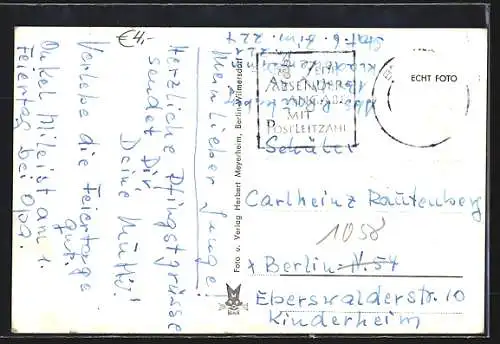 €4,-
Mein lieber Junge!
Herzliche Pfingstgrüsse
sendet Dir
Deine Mutti!
Verlebe die Feiertage
gut!
Onkel
ist am 1.
Feiertag bei Opa.
Foto u. Verlag Herbert Meyerheim, Berlin-Wilmersdorf
ABSENDER-
ANGABE
MIT
POSTLEITZAHL
ECHT FOTO
Stat. 6. Zim. 227
Schüler
Carlheinz Rautenberg
1058
x Berlin N. 54
Eberswalderstr. 10
Kinderheim